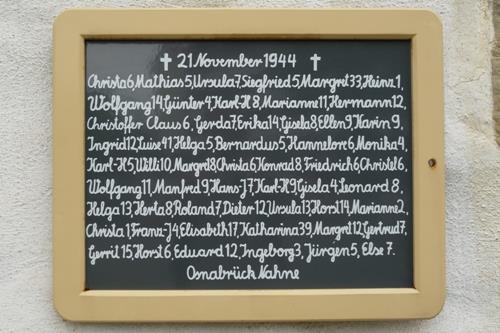 ✝ 21 November 1944 ✝
Christa 6, Mathias 5, Ursula 7, Siegfried 5, Margret 33, Heinz 1,
Wolfgang 14, Günter 4, Karl-H 8, Marianne 11, Hermann 12,
Christoffer Claus 6, Gerda 7, Erika 14, Gisela 8, Ellen 9, Karin 9,
Ingrid 12, Luise 41, Helga 5, Bernardus 5, Hannelore 6, Monika 4,
Karl-H 5, Willi 10, Margret 8, Christa 6, Konrad 8, Friedrich 6, Christel 6,
Wolfgang 11, Manfred 9, Hans-J 7, Karl-H 9, Gisela 4, Leonard 8,
Helga 13, Herta 8, Roland 7, Dieter 12, Ursula 13, Horst 14, Marianne 2,
Christa 1, Franz-J 4, Elisabeth 17, Katharina 39, Margret 12, Gertrud 7,
Gerrit 15, Horst 6, Eduard 12, Ingeborg 3, Jürgen 5, Else 7.
Osnabrück Nahne